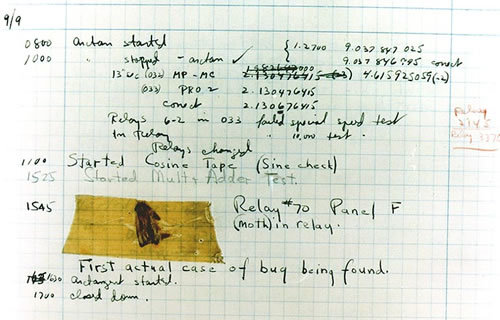 9/9
0800 antan started { 1.2700 9.037 847 025
1000 " stopped - antan ✓ 9.037 846 995 conect
13"uc (032) MP - MC 2.130476415 (-3) 4.615925059(-2)
(033) PRO 2 2.130476415
conect 2.130676415
Relays 6-2 in 033 failed special speed test
In Relay " 10,000 test .
Relay
2145
Relay 3370
Relays changed
1100 Started Cosine Tape (Sine check)
1525 Started Mult + Adder Test.
1545 Relay #70 Panel F
(Moth) in relay.
First actual case of bug being found.
1630 antangent started.
1700 closed down.